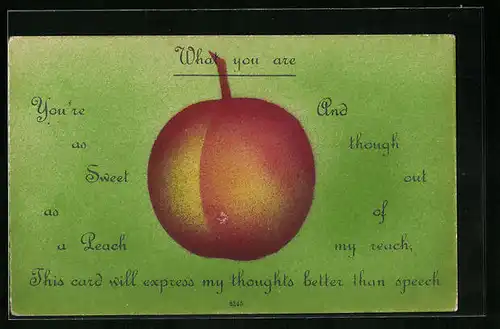 What you are
You're
as
Sweet
as
a Peach
And
though
out
of
my reach,
This card will express my thoughts better than speech